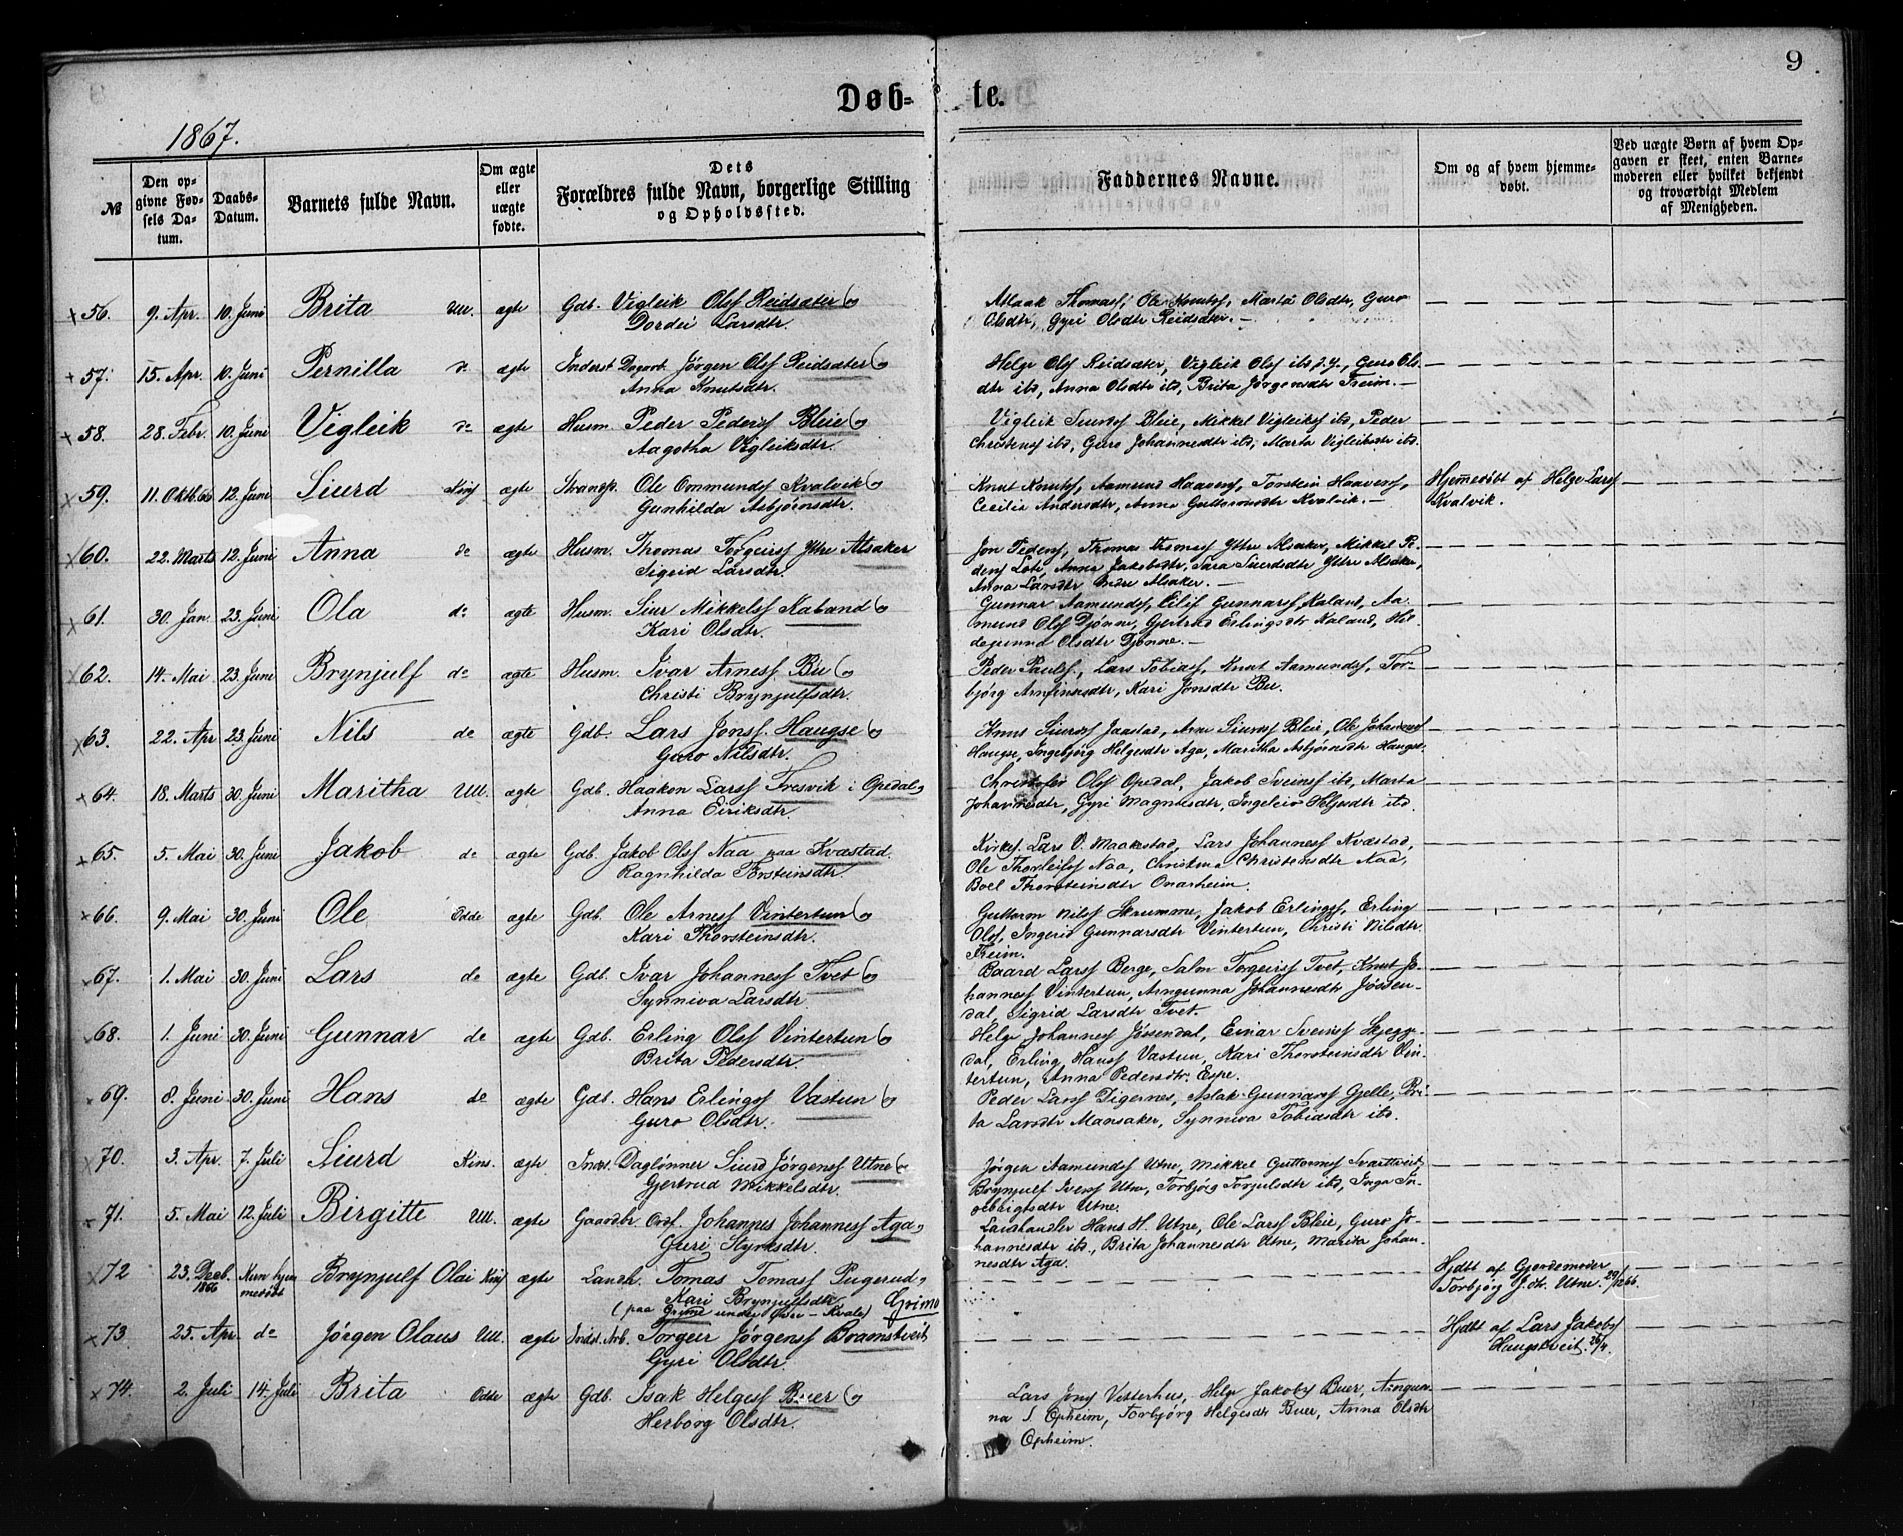 9
Døb- te.
1867.
№
Den op-
givne Fød-
sels Da-
tum.
Daabs-
Datum.
Barnets fulde Navn.
Om ægte
eller
uægte
fødte.
Dets
Forældres fulde Navn, borgerlige Stilling
og Opholdssted.
Faddernes Navne.
Om og af hvem hjemme-
døbt.
Ved uægte Børn af hvem Op-
gaven er skeet, enten Barne-
moderen eller hvilket bekjendt
og troværdigt Medlem
af Menigheden.
56. 9. Apr. 10. Juni Brita Ull. ægte Gdb. Vigleik Olsf Reidsæter
Dordei Larsdtr.
Aslaak Thomasf, Ole Knutsf, Marta Olsdtr, Guro
Olsdtr, Gyri Olsdtr Reidsæter.
57. 15. Apr. 10. Juni Pernilla do ægte Inderst Dagarb. Jørgen Olsf Reidsæter
Anna Knutsdtr.
Helge Olsf Reidsæter, Vigleik Olsf ibd, Guro Ols-
dtr ibd, Anna Olsdtr ibd, Brita Jørgensdtr Freim.
58. 28. Febr. 10. Juni Vigleik do ægte Husm. Peder Pedersf Bleie
Aagotha Vigleiksdtr.
Vigleik Siursf Bleie, Mikkel Vigleiksf ibd, Peder
Christensf ibd, Guro Johannesdtr ibd, Marta Vigleiksdtr ibd.
59. 11. Oktb 66 12. Juni Siurd Kinsf ægte Strandsp. Ole Ommundsf Kvalvik
Gunhilda Asbjørnsdtr.
Knut Knutsf, Aamund Haavers, Torstein Haaversf,
Cecilia Andersdtr, Anna Guttormsdtr Kvalvik.
Hjemmedøbt af Helge Larsf
Kvalvik.
60. 22. Marts 12. Juni Anna do ægte Husm. Thomas Torgeirsf Ytre Alsaker
Sigrid Larsdtr.
Jon Pedersf, Thomas Thomasf Ytre Alsaker, Mikkel Pe-
dersf Lote, Anna Jakobsdtr, Sara Siursdtr Ytre Alsaker,
Anna Larsdtr Indre Alsaker.
61. 30. Jan. 23. Juni Ola do ægte Husm. Siur Mikkelsf Kaland
Kari Olsdtr.
Gunnar Aamundsf, Eilif Gunnarsf Kaland, Aa-
mund Olsf Djønne, Gjertrud Erlingsdtr Kaland, Hil-
degunna Olsdtr Djønne.
62. 14. Mai 23. Juni Brynjulf do ægte Husm. Ivar Arnesf Bu
Christi Brynjulfsdtr.
Peder Paulsf., Lars Tobiasf, Knut Aamundsf, Tor-
bjørg Arnfinnsdtr, Kari Jonsdtr Bu.
63. 22. Apr 23. Juni Nils do ægte Gdb. Lars Jonsf. Haugse
Guro Nilsdtr.
Knut Siursf Jaastad, Arne Siursf Bleie, Ole Johannesf
Haugse, Ingebjørg Helgesdtr Aga, Maritha Asbjørnsdtr Haugse.
64. 18. Marts 30. Juni Maritha Ull. ægte Gdb. Haakon Larsf Tresvik i Opedal
Anna Eiriksdtr.
Christofer Olsf Opedal, Jakob Sveinsf ibd, Marta
Johannesdtr, Gyri Magnusdtr, Ingeleiv Helgesdtr ibd.
65. 5. Mai 30. Juni Jakob do ægte Gdb. Jakob Olsf Naa paa Kvæstad
Ragnhilda Torsteinsdtr.
Kirkes. Lars O. Maakestad, Lars Johannesf Kvæstad,
Ole Thorleifsf Naa, Christina Christensdtr Aad,
Boel Thorsteinsdtr Onarheim.
66. 9. Mai 30. Juni Ole Odde ægte Gdb. Ole Arnesf Vintertun
Kari Thorsteinsdtr.
Guttorm Nilsf Skrumme, Jakob Erlingsf, Erling
Olsf, Ingerid Gunnarsdtr Vintertun, Christi Nilsdtr
Freim.
67. 1. Mai 30. Juni Lars do ægte Gdb. Ivar Johannesf Tvet
Synniva Larsdtr
Baard Larsf Berge, Salm Torgeirsf Tvet, Knut Jo-
hannesf Vintertun, Arngunna Johannesdtr Jøsen-
dal, Sigrid Larsdtr Tvet.
68. 1. Juni 30. Juni Gunnar do ægte Gdb. Erling Olsf Vintertun
Brita Pedersdtr.
Helge Johannesf Jøsendal, Einar Sveinsf Skjegge-
dal, Erling Hansf Vastun, Kari Thorsteinsdtr Vin-
tertun, Anna Pedersdtr. Espe.
69. 8. Juni 30. Juni Hans do ægte Gdb. Hans Erlingsf Vastun
Guro Olsdtr.
Peder Larsf Digernes, Aslak Gunnarsf Gjelle, Bri-
ta Larsdtr Mansaker, Synniva Tobiasdtr ibd.
70. 3. Apr. 7. Juli Siurd Kins. ægte Inds. Daglønner Siurd Jørgensf Utne
Gjertrud Mikkelsdtr.
Jørgen Aamundsf Utne, Mikkel Guttormsf Svartveit,
Brynjulf Iversf Utne, Torbjørg Torjulsdtr ibd, Inga In-
gebrigtsdtr Utne.
71. 5. Mai 12. Juli Birgitte Ull. ægte Gaardbr. Ordf. Johannes Johannesf Aga
Guri Styrksdtr.
Landhandler Hans H. Utne, Ole Larsf Bleie, Guro Jo-
hannesdtr ibd., Brita Johannesdtr Utne, Marita Johan-
nesdtr Aga.
72 23. Decb. 1866 Kun hjem
medøbt Brynjulf Olai Kinsf ægte Landh. Tomas Tomasf Pugerud
Kari Brynjulfsdtr
(paa Grimo under Østre-Kvale) Grimo
Hjdbt af Gjordemoder
Torbjøg J.dtr. Utne. 29/12 66.
73 25. Apr. do Jørgen Olaus Ull. ægte Indst. Arb. Torgeir Jørgensf Braanstveit
Gyri Olsdtr.
Hjdbt af Lars Jakobsf
Haugstveit. 26/4.
74. 2. Juli 14. Juli Brita Odde ægte Gdb. Isak Helgesf Buer
Herborg Olsdtr.
Lars Jonsf Vesterhus, Helge Jakobsf Buer, Arngun-
na I. Opheim, Torbjørg Helgesdtr Buer, Anna Olsdtr
Opheim.